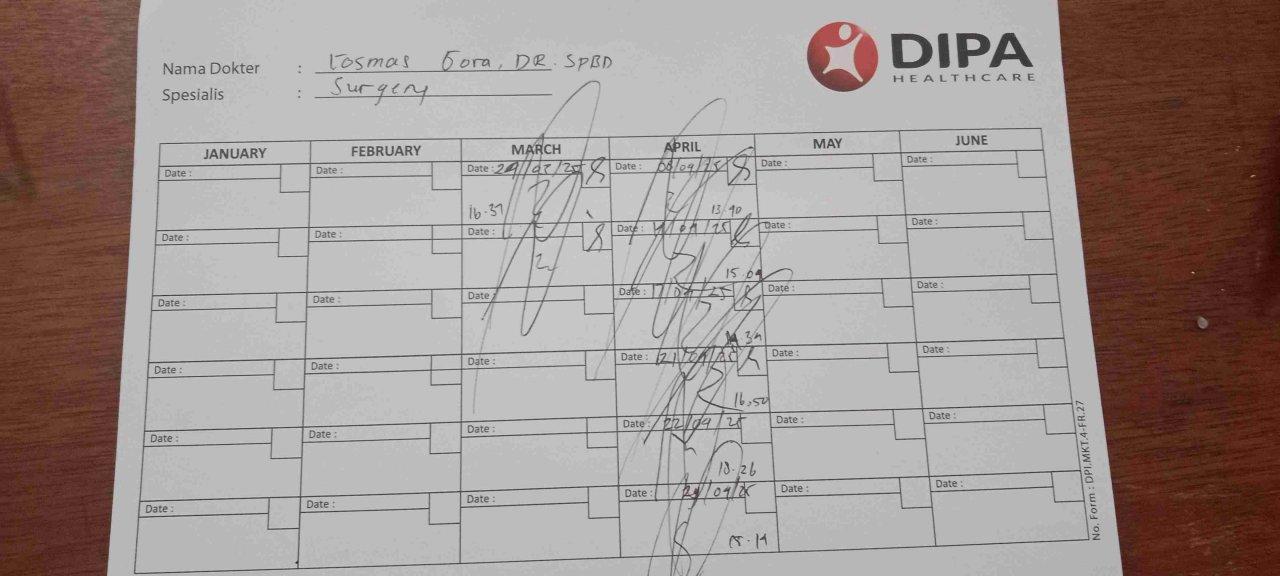 DIPA
HEALTHCARE
Nama Dokter : Kosmas Gora, DR. SpBD
Spesialis : Surgery
JANUARY FEBRUARY MARCH APRIL MAY JUNE
Date : Date : Date : Date : 08/04/25 Date : Date :
16.37 13.40
Date : Date : Date : Date : /04/25 Date : Date :
15.09
Date : Date : Date : Date : 17/04/25 Date : Date :
Date : Date : Date : Date : 21/04/25 Date : Date :
16.50
Date : Date : Date : Date : 22/04/25 Date : Date :
18.26
Date : Date : Date : Date : /04/25 Date : Date :
No. Form : DPI.MKT.4-FR.27